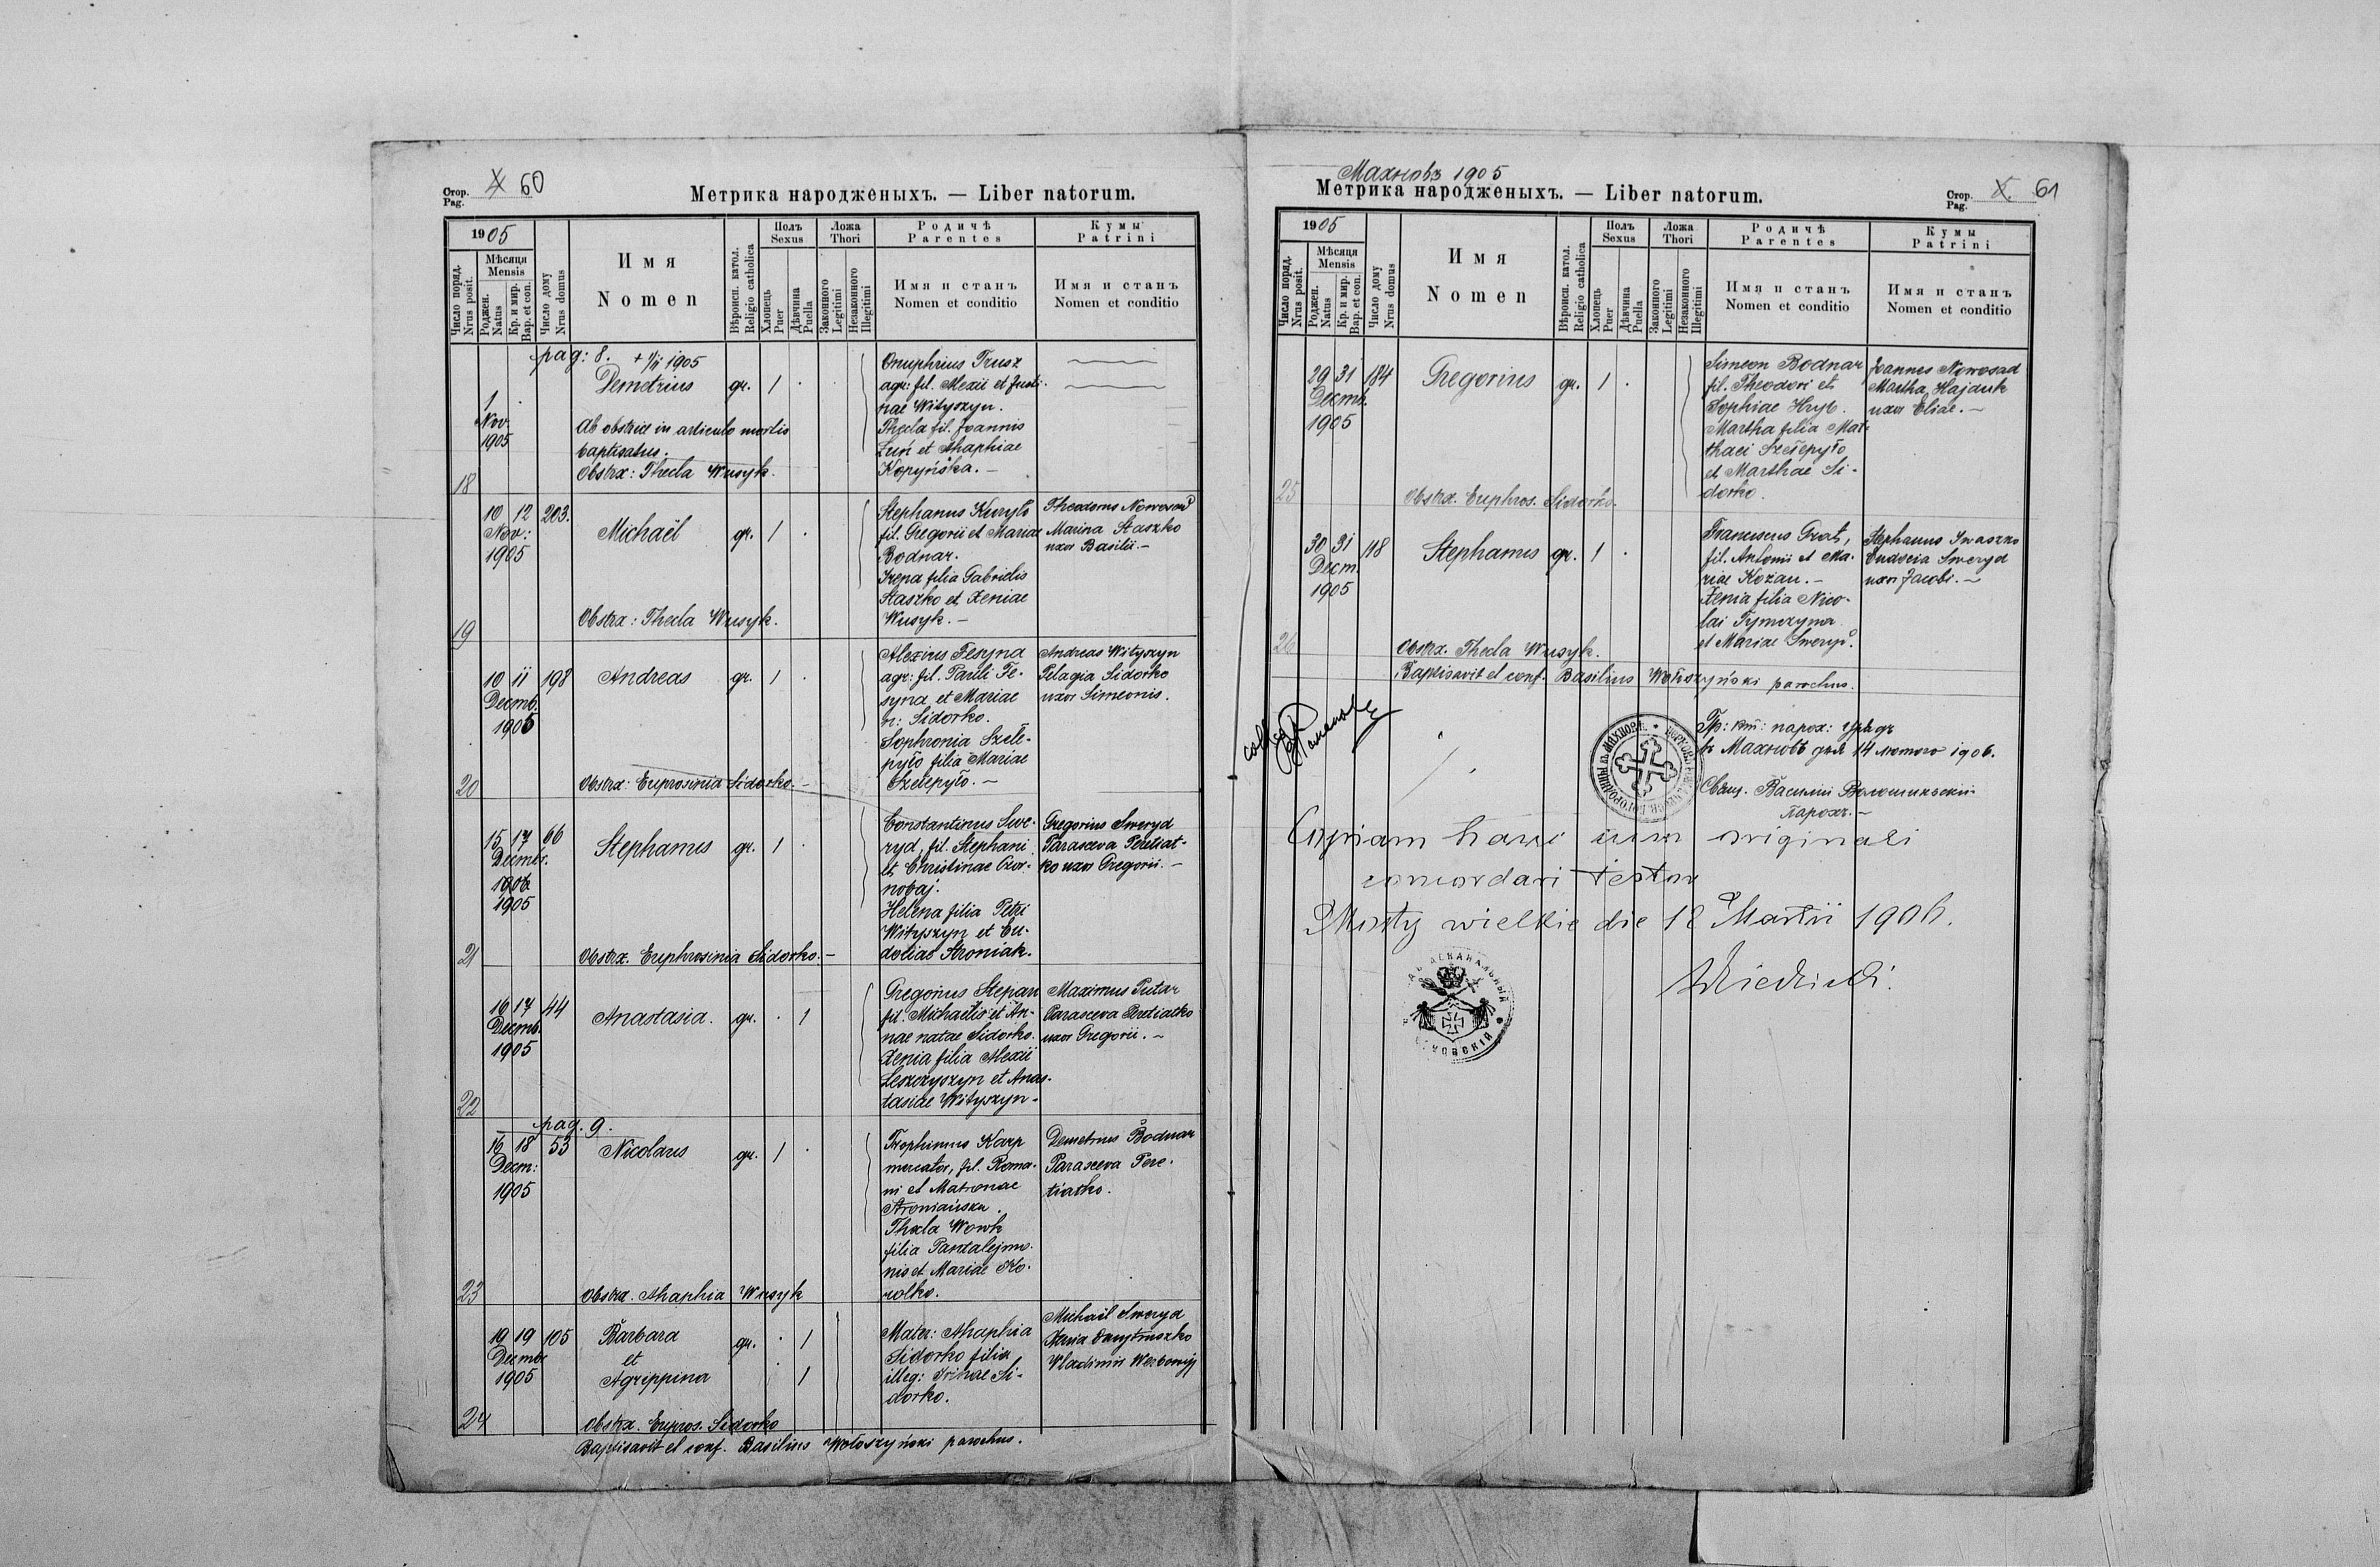 Стор.
Pag.
60
Метрика народженыхъ. — Liber natorum.
1905
Число поряд.
Nrus posit.
Мѣсяця
Mensis
Роджен.
Natus
Кр. и мир.
Bap. et con.
Число дому
Nrus domus
Имя
Nomen
Вѣроисп. катол.
Religio catholica
Полъ
Sexus
Хлопець
Puer
Дѣвчина
Puella
Ложа
Thori
Законного
Legitimi
Незаконного
Illegitimi
Родичѣ
Parentes
Имя и станъ
Nomen et conditio
Кумы
Patrini
Имя и станъ
Nomen et conditio
pag: 8.
18
1
Nov.
1905
+ 1/11 1905
Demetrius
gr. 1 ·
Ab obstrice in articulo mortis
baptisatus.
Obstrx: Thecla Wusyk.
Onuphrius Trusz
agr: fil. Alexii et Justi-
nae Wityszyn.
Thecla fil. Joannis
Luń et Ahaphiae
Kopyńska. —
19
10 12 203.
Nov:
1905
Michaël
gr. 1 ·
Obstrx: Thecla Wusyk.
Stephanus Kuryło
fil. Gregorii et Mariae
Bodnar.
Irena filia Gabrielis
Staszko et Xeniae
Wusyk. —
Theodorus Nowosad
Marina Staszko
uxor Basilii. —
20
10 11 198
Decmb.
1905
Andreas
gr. 1 ·
Obstrx: Euprosinia Sidorko. —
Alexius Fesyna
agr: fil. Pauli Fe-
syna et Mariae
n: Sidorko.
Sophronia Szele-
pyło filia Mariae
Szelepyło. —
Andreas Wityszyn
Pelagia Sidorko
uxor Simeonis.
21
15 17 66
Decmbr.
1905
Stephanus
gr. 1 ·
Obstrx. Euphrosinia Sidorko. —
Constantinus Swe-
ryd, fil. Stephani
et Christinae Czor-
nobaj.
Helena filia Petri
Wityszyn et Eu-
dotiae Aroniak.
Gregorius Sweryd
Parasceva Peretiat-
ko uxor Gregorii. —
22
16 17 44
Decmb.
1905
Anastasia.
gr. · 1
Gregorius Stepan
fil. Michaelis et An-
nae natae Sidorko.
Xenia filia Alexii
Leszczyszyn et Anas-
tasiae Wityszyn —
Maximus Putar
Parasceva Peretiatko
uxor Gregorii. —
pag. 9.
23
16 18 53
Decm:
1905
Nicolaus
gr. 1 ·
Obstrx. Ahaphia Wusyk
Trophimus Karp
mercator, fil. Roma-
ni et Matronae
Thecla Wowk
filia Pantalejmo-
nis et Mariae Ko-
rolko.
Demetrius Bodnar
Parasceva Pere-
tiatko.
24
19 19 105
Decmbr
1905
Barbara
et
Agrippina
gr. · 1
1
Obstrx. Eupros. Sidorko
Mater: Ahaphia
Sidorko filia
illeg: Irinae Si-
dorko.
Michaël Sweryd
Wladimir
Baptisavit et conf. Basilius Wołoszyński parochus.
Махновъ 1905
Метрика народженыхъ. — Liber natorum.
Стор.
Pag.
61
1905
Число поряд.
Nrus posit.
Мѣсяця
Mensis
Роджен.
Natus
Кр. и мир.
Bap. et con.
Число дому
Nrus domus
Имя
Nomen
Вѣроисп. катол.
Religio catholica
Полъ
Sexus
Хлопець
Puer
Дѣвчина
Puella
Ложа
Thori
Законного
Legitimi
Незаконного
Illegitimi
Родичѣ
Parentes
Имя и станъ
Nomen et conditio
Кумы
Patrini
Имя и станъ
Nomen et conditio
25
29 31 184
Decmb.
1905
Gregorius
gr. 1 ·
Obstrx. Euphros. Sidorko.
Simeon Bodnar
fil. Theodori et
Sophiae Hryb.
Martha filia Mat-
thaei Szelepyło
et Marthae Si-
dorko.
Joannes Nowosad
Martha Hajduk
uxor Eliae. —
26
30 31 118
Decm.
1905
Stephanus
gr. 1 ·
Obstrx. Thecla Wusyk.
Franciscus
fil. Antonii et Ma-
riae Kozau. —
Xenia filia Nico-
lai
et Mariae Sweryd.
Stephanus Iwaszko
Eudocia Sweryd
uxor Jacobi. —
Baptisavit et conf. Basilius Wołoszyński parochus.
Гр: кт: парох: урядъ
въ Махновѣ дня 14 лютого 1906.
Свящ. Василій Волошиньскій
парохъ. —
Copiam hanc cum originali
concordari testor
Mosty wielkie die 18 Martii 1906.